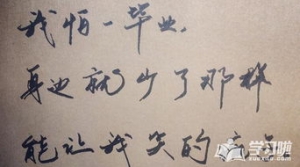 我怕一毕业，
身边就少了那样
能让我笑的
学习啦